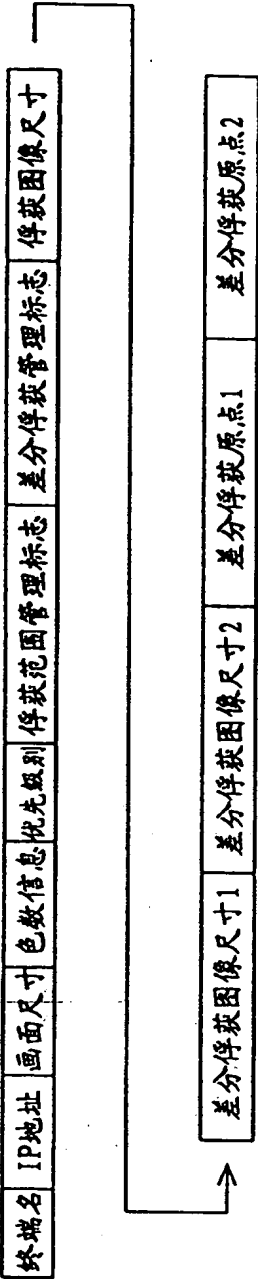 终端名 IP地址 画面尺寸 色数信息 优先级别 俘获范围管理标志 差分俘获管理标志 俘获图像尺寸
差分俘获图像尺寸1 差分俘获图像尺寸2 差分俘获原点1 差分俘获原点2